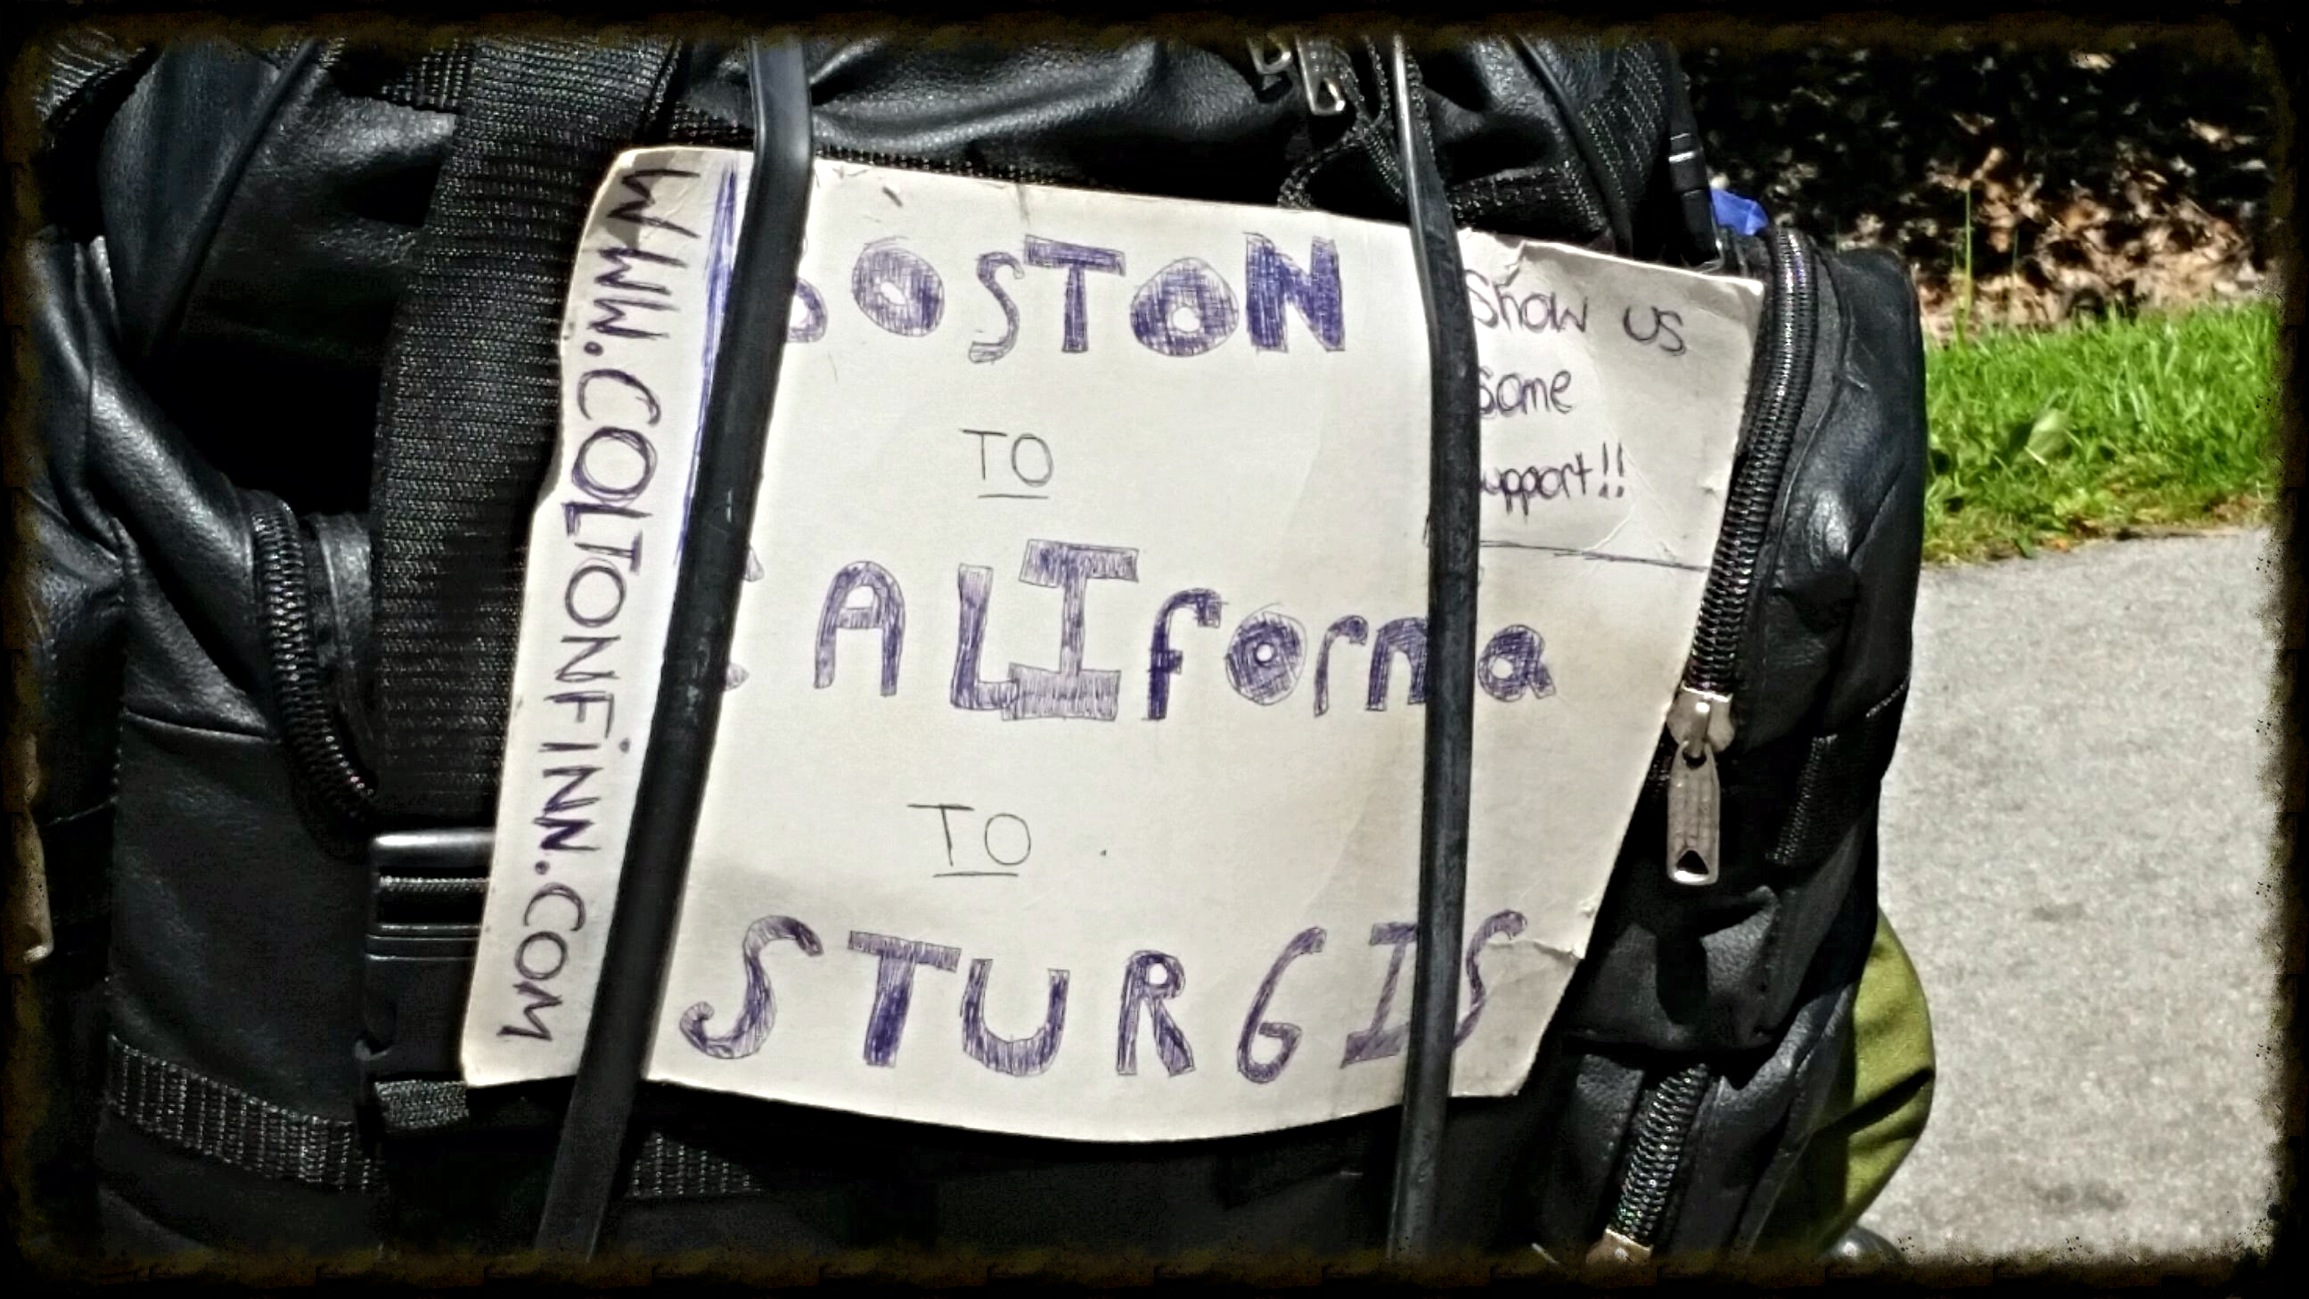 WWW.COLTONFINN.COM
BOSTON
TO
CALIFornia
TO
STURGIS
Show US
Some
Support!!